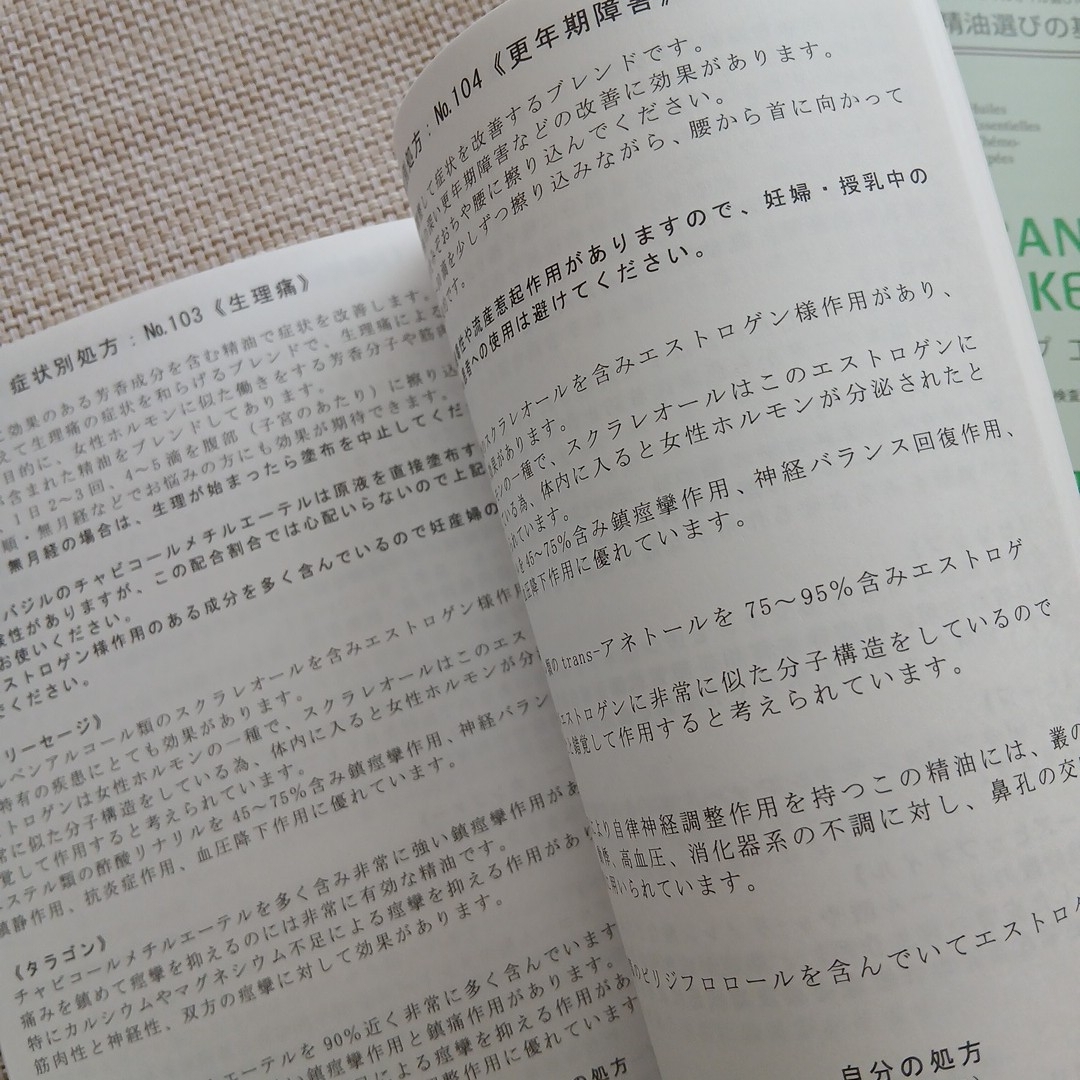 症状別処方：№103《生理痛》
効果のある芳香成分を含む精油で症状を改善します。
えて生理痛の症状を和らげるブレンドで、生理痛による
目的に、女性ホルモンに似た働きをする芳香分子や筋
が含まれた精油をブレンドしてあります。
、1日2～3回、4～5滴を腹部（子宮のあたり）に擦り込
順・無月経などでお悩みの方にも効果が期待できます。
無月経の場合は、生理が始まったら塗布を中止してくだ
バジルのチャビコールメチルエーテルは原液を直接塗布す
性がありますが、この配合割合では心配いらないので上記
お使いください。
ストロゲン様作用のある成分を多く含んでいるので妊産婦の
ください。
リーセージ》
ルペンアルコール類のスクラレオールを含みエストロゲン様作用
特有の疾患にとても効果があります。
ストロゲンは女性ホルモンの一種で、スクラレオールはこのエス
常に似た分子構造をしている為、体内に入ると女性ホルモンが分
覚して作用すると考えられています。
ステル類の酢酸リナリルを45～75％含み鎮痙攣作用、神経バラン
鎮静作用、抗炎症作用、血圧降下作用に優れています。
《タラゴン》
チャビコールメチルエーテルを多く含み非常に強い鎮痙攣作用があ
痛みを鎮めて痙攣を抑えるのには非常に有効な精油です。
特にカルシウムやマグネシウム不足による痙攣を抑える作用があり
筋肉性と神経性、双方の痙攣に対して効果があります。
エーテルを90％近く非常に多く含んでいます
痙攣作用と鎮痛作用があります。
による痙攣を抑える作用があ
整作用に優れています
の処方
処方：№104《更年期障害》
して症状を改善するブレンドです。
い更年期障害などの改善に効果があります。
みぞおちや腰に擦り込んでください。
滴を少しずつ擦り込みながら、腰から首に向かって
です。
性や流産惹起作用がありますので、妊婦・授乳中の
者への使用は避けてください。
スクラレオールを含みエストロゲン様作用があり、
果があります。
モンの一種で、スクラレオールはこのエストロゲンに
いる為、体内に入ると女性ホルモンが分泌されたと
れています。
を45～75％含み鎮痙攣作用、神経バランス回復作用、
圧降下作用に優れています。
類のtrans-アネトールを75～95％含みエストロゲ
エストロゲンに非常に似た分子構造をしているので
と錯覚して作用すると考えられています。
より自律神経調整作用を持つこの精油には、叢の
、高血圧、消化器系の不調に対し、鼻孔の交
用いられています。
ビリジフロロールを含んでいてエストロゲ
自分の処方
精油選びの基
uiles
ssentielles
hémo-
pées
AN
KE
検査